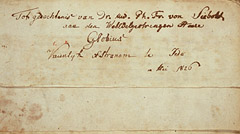 Tot gedachtenis van Dr. med. Ph. Fr. von Siebold
aan den Weledelgestrengen Heere
Globius
Keiserlijk Astronom te Jedo
Mei 1826